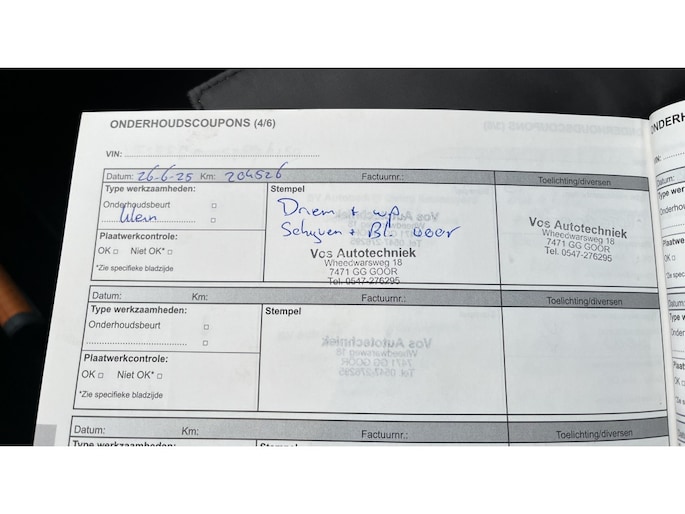 ONDERHOUDSCOUPONS (4/6)
VIN:
Datum: 26-6-25 Km: 204526 Factuurnr.: Toelichting/diversen
Type werkzaamheden:
Onderhoudsbeurt
klein
Plaatwerkcontrole:
OK Niet OK*
*Zie specifieke bladzijde
Stempel
+ wp
Schijven + Bl. voor
Vos Autotechniek
Wheedwarsweg 18
7471 GG GOOR
Tel. 0547-276295
Vos Autotechniek
Wheedwarsweg 18
7471 GG GOOR
Tel. 0547-276295
Datum: Km: Factuurnr.: Toelichting/diversen
Type werkzaamheden:
Onderhoudsbeurt
Plaatwerkcontrole:
OK Niet OK*
*Zie specifieke bladzijde
Stempel
Datum: Km: Factuurnr.: Toelichting/diversen
Type werkzaamheden:
Stempel
VIN: